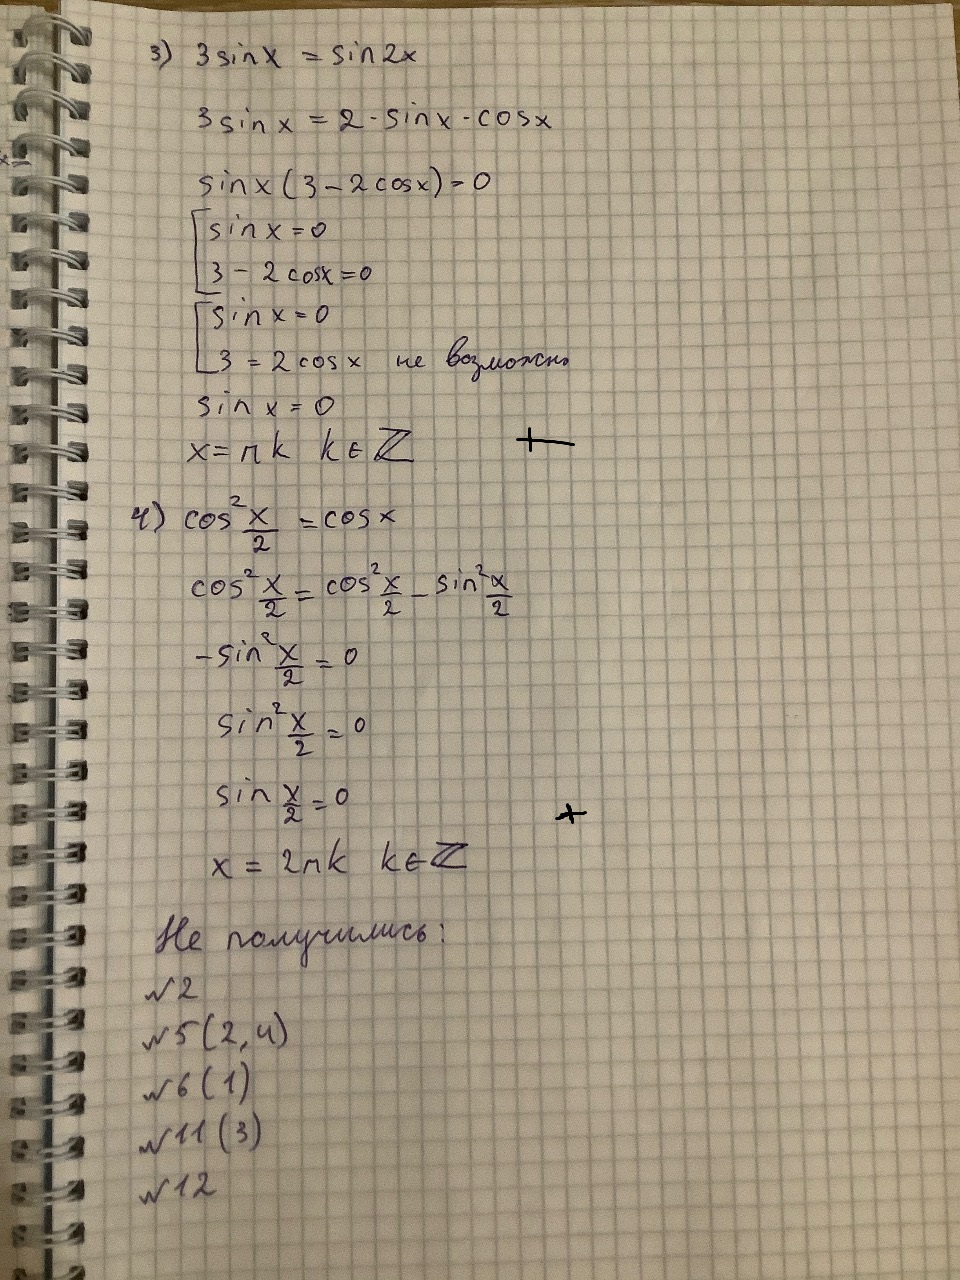 3) 3 sin x = sin 2x
3 sin x = 2 · sin x · cos x
sin x (3 - 2 cos x) = 0
[ sin x = 0
3 - 2 cos x = 0
[ sin x = 0
3 = 2 cos x не возможно
sin x = 0
x = πk k ∈ ℤ +
4) cos² x/2 = cos x
cos² x/2 = cos² x/2 - sin² x/2
- sin² x/2 = 0
sin² x/2 = 0
sin x/2 = 0
+
x = 2πk k ∈ ℤ
Не получились:
№2
№5 (2, 4)
№6 (1)
№11 (3)
№12